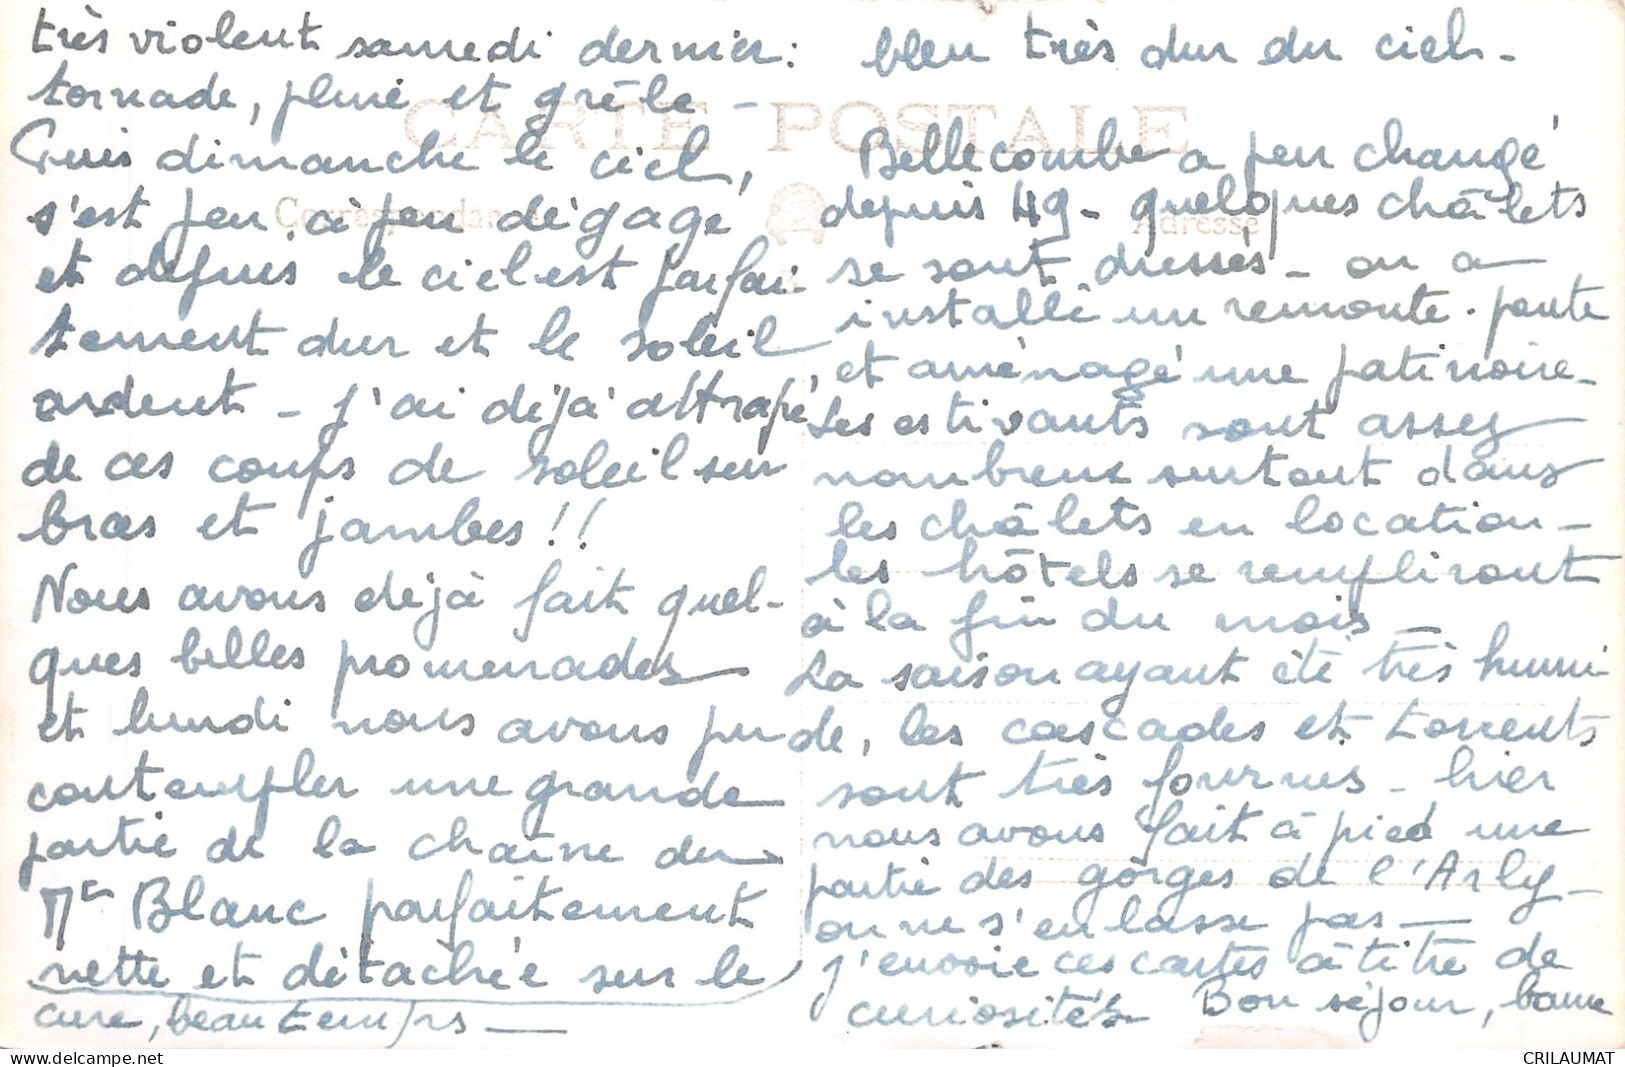 très violent samedi dernier :
tornade, pluie et grêle -
Puis dimanche le ciel,
s'est peu à peu dégagé
et depuis le ciel est parfai-
tement dur et le soleil
ardent - j'ai déjà attrapé
de ces coups de soleil sur
bras et jambes !!
Nous avons déjà fait quel-
ques belles promenades
et lundi nous avons pu
contempler une grande
partie de la chaîne du
Mt Blanc parfaitement
nette et détachée sur le
bleu très dur du ciel -
CARTE POSTALE
Correspondance
Adresse
Bellecombe a peu changé
depuis 49 - quelques châlets
se sont dressés - on a
installé un remonte-pente
et aménagé une patinoire -
Les estivants sont assez
nombreux surtout dans
les châlets en location -
les hôtels se rempliront
à la fin du mois -
La saison ayant été très humi-
de, les cascades et torrents
sont très fournis - hier
nous avons fait à pied une
partie des gorges de l'Arly -
on ne s'en lasse pas -
j'envoie ces cartes à titre de
curiosités Bon séjour, bonne
cure, beau temps -
CRILAUMAT